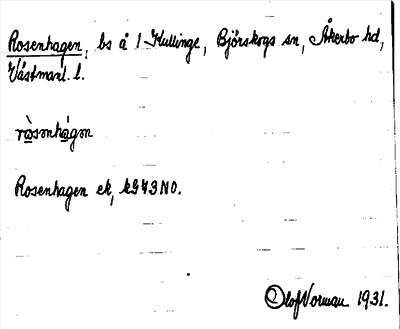 Rosenhagen, bs å 1 Kullinge, Björskogs sn, Åkerbo hd,
Västmanl. l.
rò̲sənhá̲gən
Rosenhagen ek, kG43NO.
Olof Norman 1931.